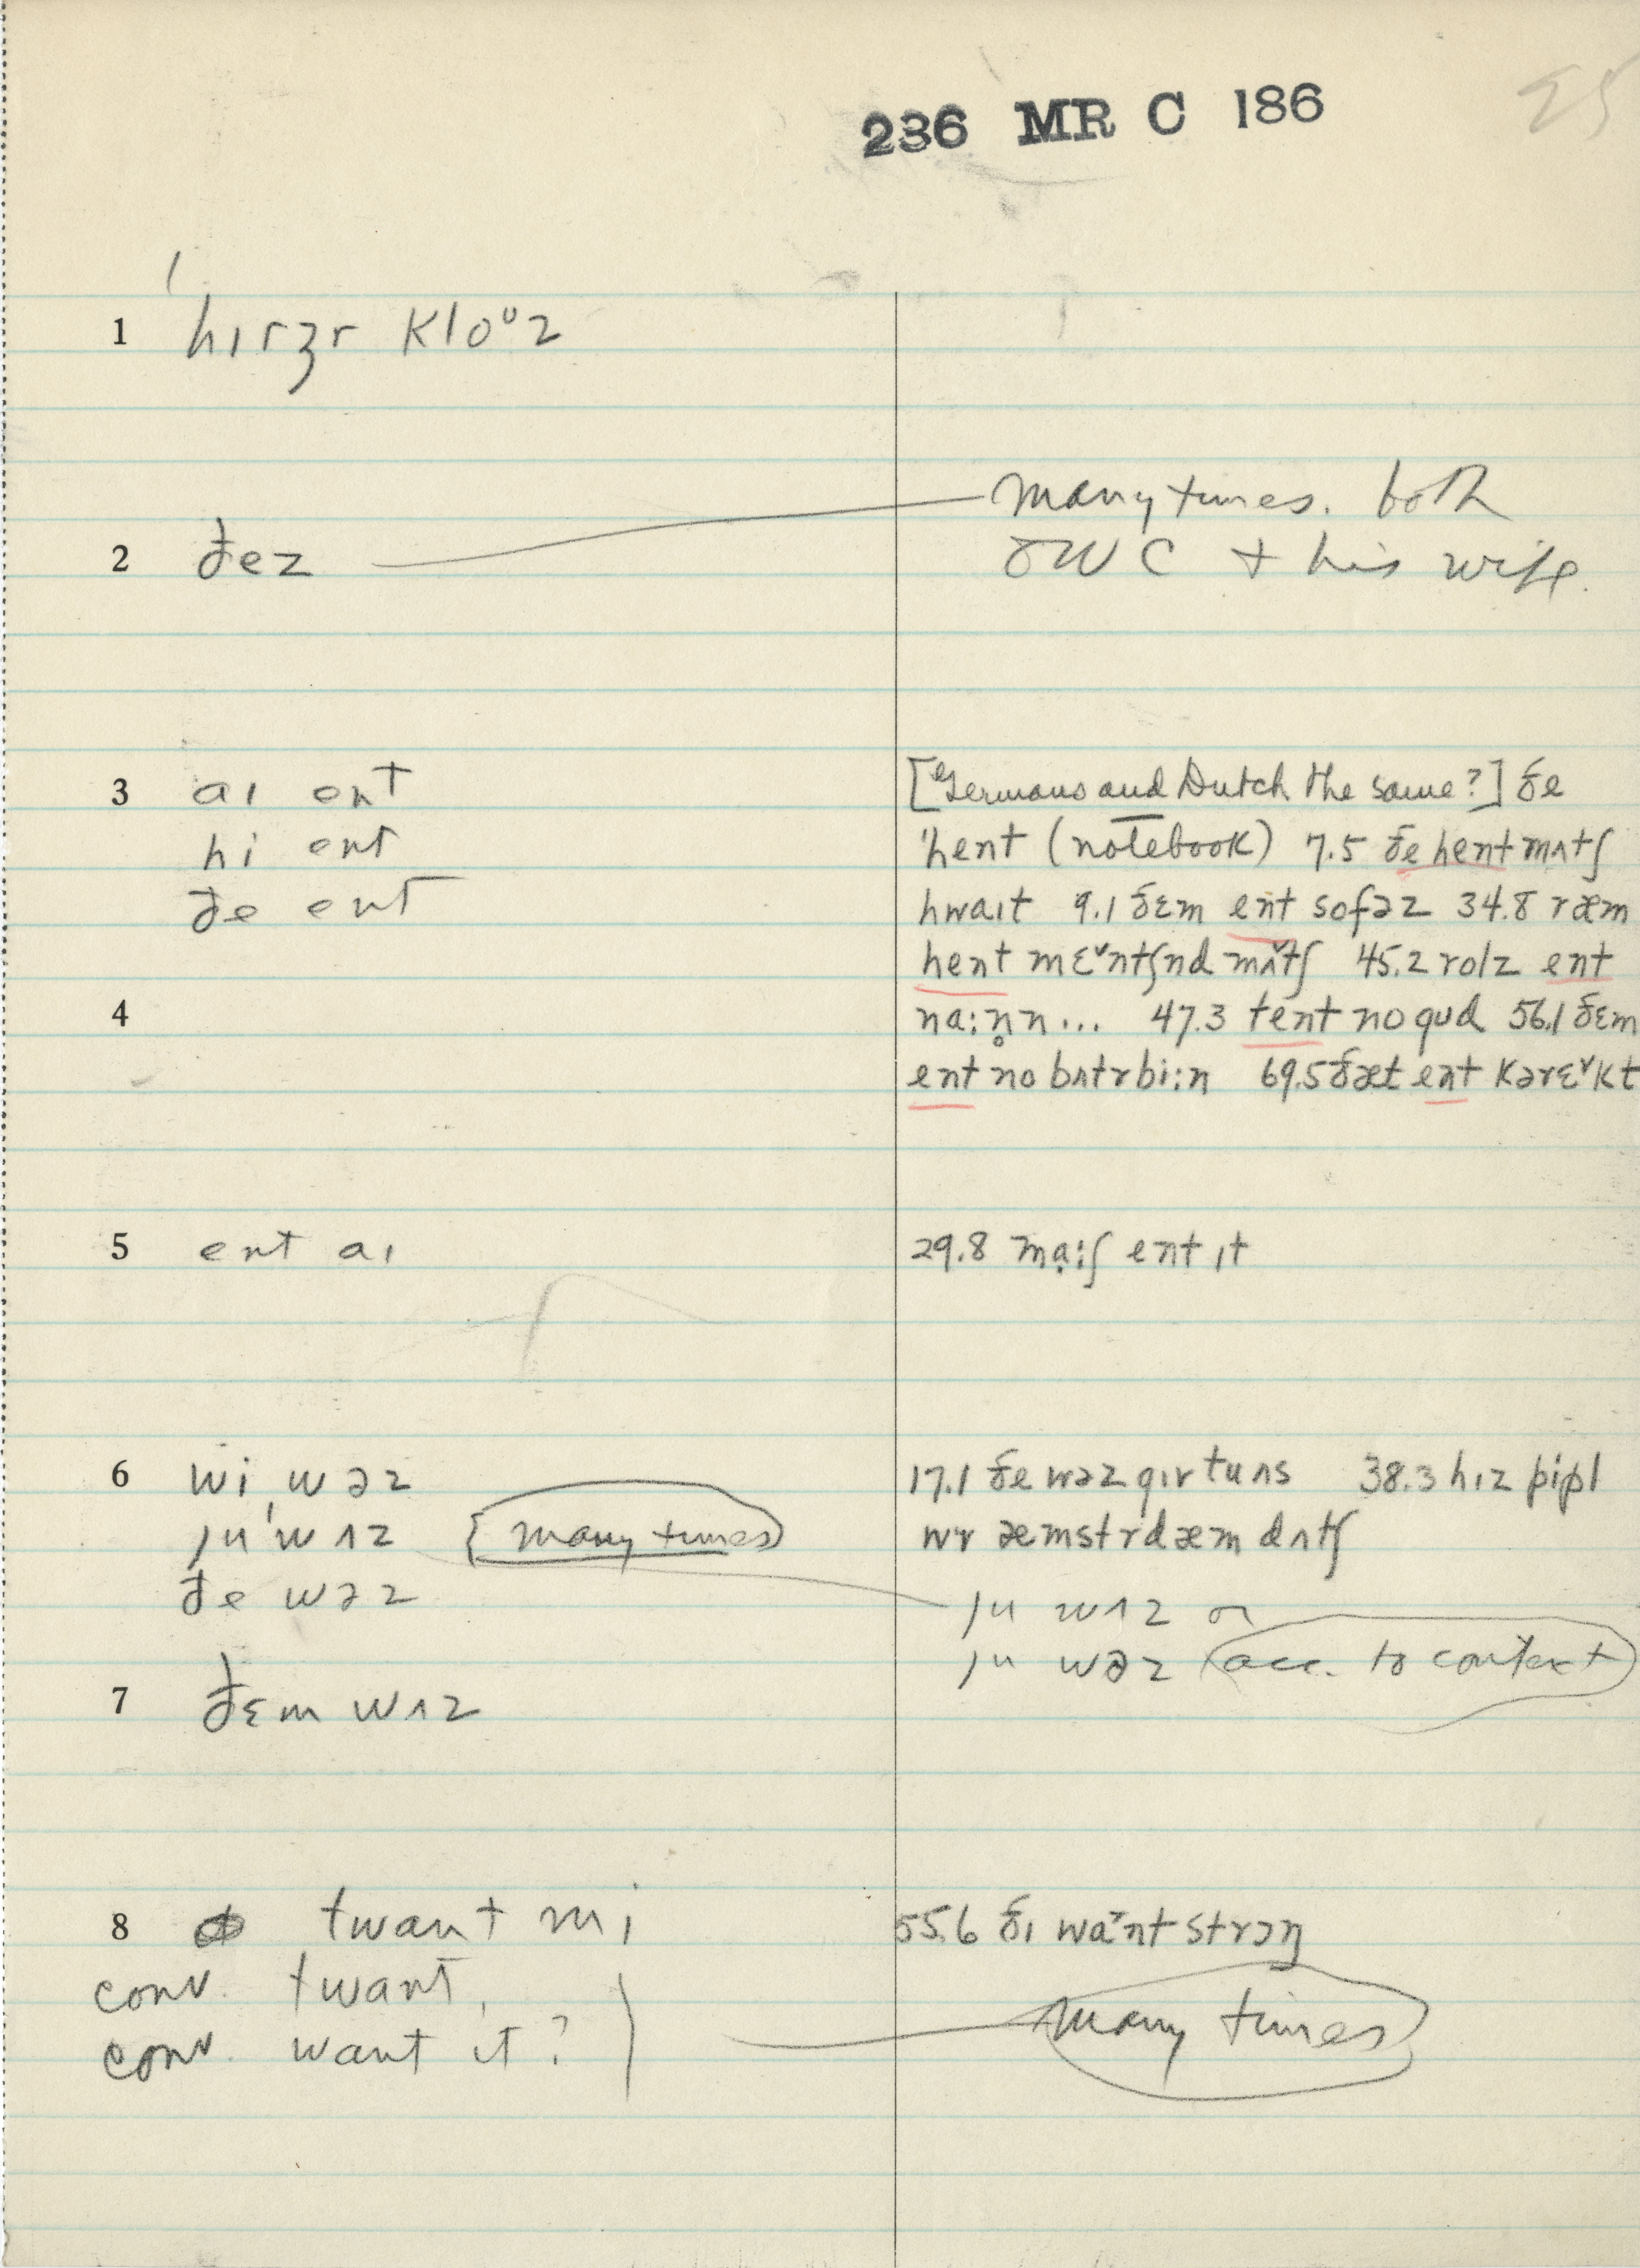 236 MR C 186
25
1 hɪrɜr kloᶷz
many times. both
2 ðez
JWC + his wife.
3 aɪ ent
hi ent
ðe ent
[Germans and Dutch the same?] ðe
hent (notebook) 7.5 ðe hent mʌtʃ
hwaɪt 9.1 ðɛm ent sofəz 34.8 ræm
hent mɛ˅ntʃnd mʌ˅tʃ 45.2 rolz ent
4
na:n̥n... 47.3 tent no gud 56.1 ðɛm
ent no bʌtrbi:n 69.5 ðæt ent kərɛ˅kt
5 ent aɪ
29.8 mạ:ʃ ent ɪt
6 wi wəz
ju ˈwʌz [many times]
ðe wəz
17.1 ðe wəz gɪr tuns 38.3 hɪz pipl
wr æmstrdæm dʌtʃ
ju wʌz or
ju wəz (acc. to context)
7 ðɛm wʌz
8 twant mi
conv. twant
conv. want it?
55.6 ðɪ wa˅nt strɔŋ
many times